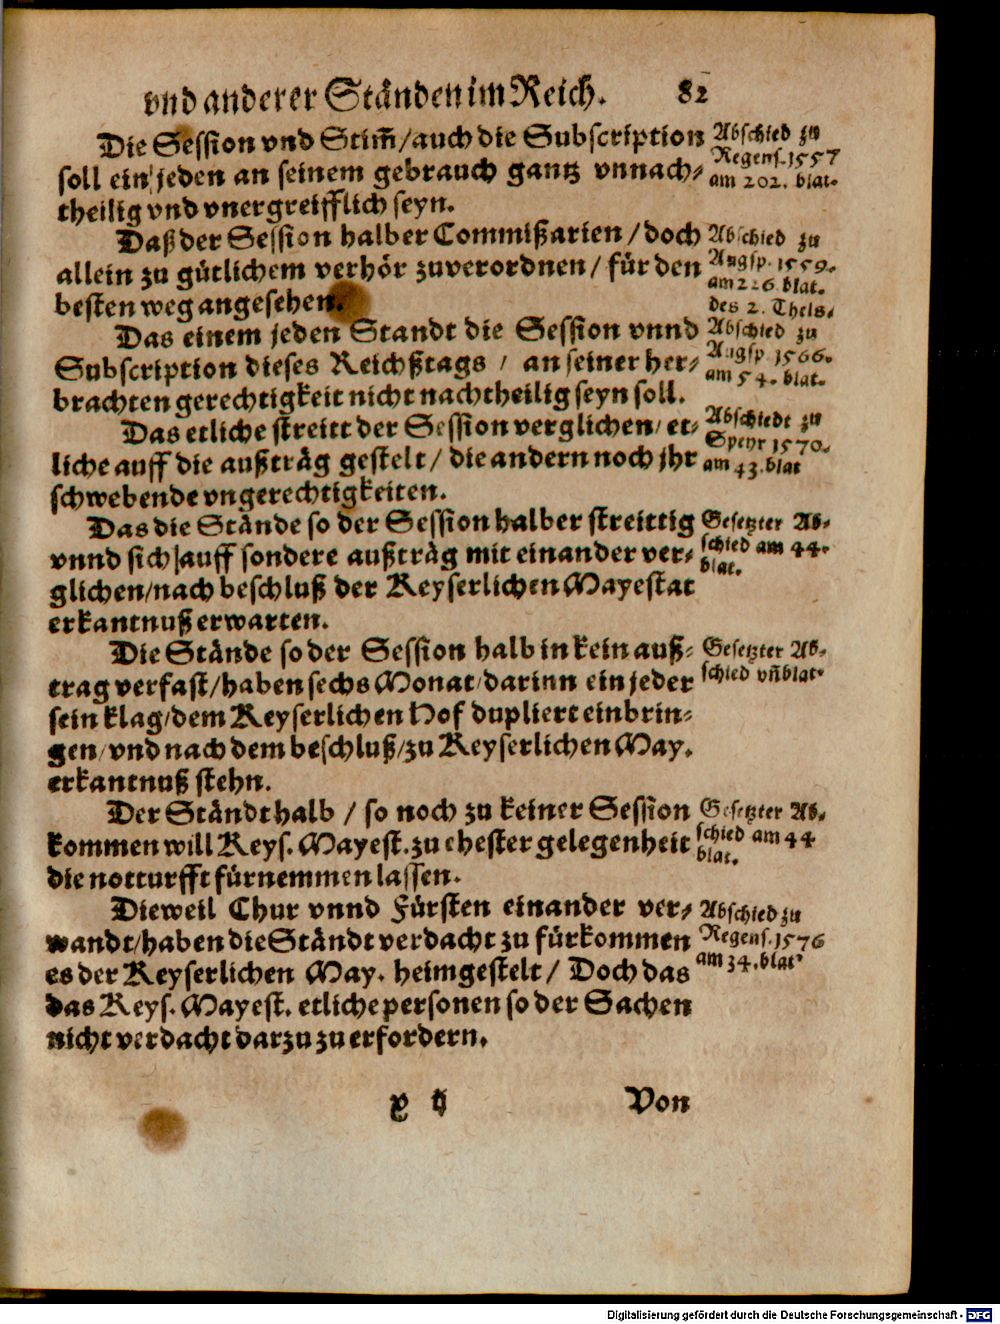 vnd anderer Ständen im Reich. 82
Die Session vnd Stim̄/auch die Subscription
soll ein jeden an seinem gebrauch gantz vnnach-
theilig vnd vnergreifflich seyn.
Abschied zu
Regens.1557
am 202. blat.
Daß der Session halber Commißarien/doch
allein zu gütlichem verhör zuverordnen/für den
besten weg angesehen.
Abschied zu
Augsp.1559.
am 226 blat.
des 2. Thels.
Das einem jeden Standt die Session vnnd
Subscription dieses Reichßtags / an seiner her-
brachten gerechtigkeit nicht nachtheilig seyn soll.
Abschied zu
Augsp 1566.
am 54. blat.
Das etliche streitt der Session verglichen/et-
liche auff die außträg gestelt/die andern noch jhr
schwebende vngerechtigkeiten.
Abschiedt zu
Speyr 1570.
am 43.blat
Das die Stände so der Session halber streittig
vnnd sich auff sondere außträg mit einander ver-
glichen/nach beschluß der Keyserlichen Mayestat
erkantnuß erwarten.
Gesetzter Ab-
schied am 44.
blat.
Die Stände so der Session halb in kein auß-
trag verfast/haben sechs Monat/darinn ein jeder
sein klag/dem Keyserlichen Hof dupliert einbrin-
gen/vnd nach dem beschluß/zu Keyserlichen May.
erkantnuß stehn.
Gesetzter Ab-
schied vn̄ blat.
Der Ständt halb / so noch zu keiner Session
kommen will Keys. Mayest. zu ehester gelegenheit
die notturfft fürnemmen lassen.
Gesetzter Ab-
schied am 44
blat.
Dieweil Chur vnnd Fürsten einander ver-
wandt/haben die Ständt verdacht zu fürkommen
es der Keyserlichen May. heimgestelt/ Doch das
das Keys. Mayest. etliche personen so der Sachen
nicht verdacht darzu zu erfordern.
Abschied zu
Regens.1576
am 34.blat.
Von
Digitalisierung gefördert durch die Deutsche Forschungsgemeinschaft - DFG